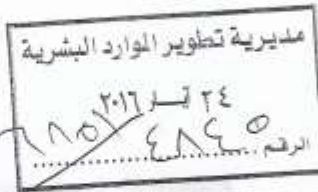 مديرية تطوير الموارد البشرية
٢٤ أيار ٢٠١٦
الرقم ٤٨٤٥